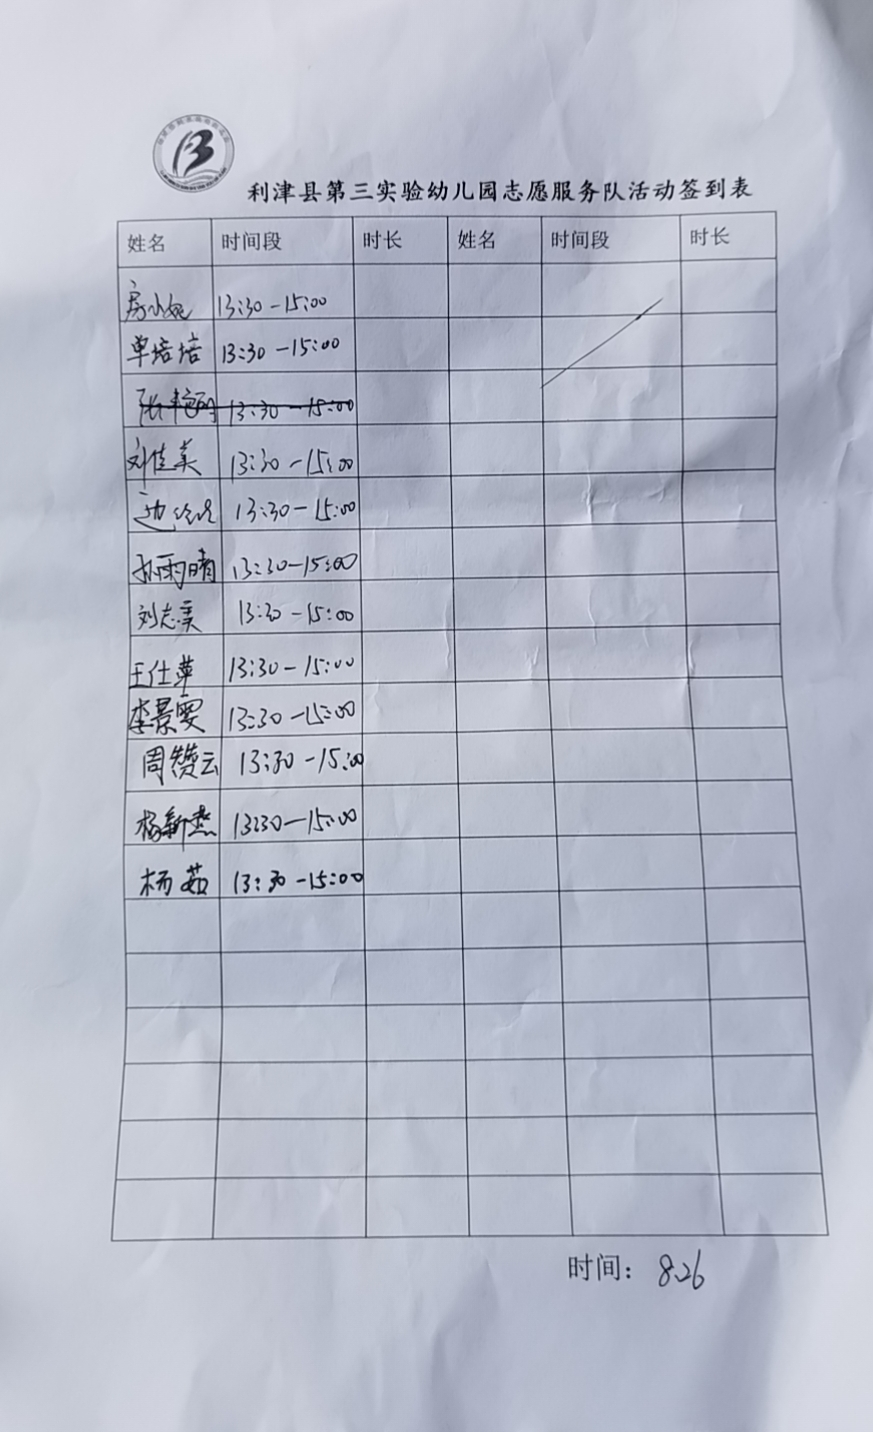 利津县第三实验幼儿园志愿服务队活动签到表
姓名 时间段 时长 姓名 时间段 时长
房小妮 13:30-15:00
单培培 13:30-15:00
13:30-15:00
刘佳美 13:30-15:00
边 13:30-15:00
孙雨晴 13:30-15:00
刘志美 13:30-15:00
王仕苹 13:30-15:00
李景雯 13:30-15:00
周赞云 13:30-15:00
杨新杰 13:30-15:00
杨茹 13:30-15:00
时间: 8.26